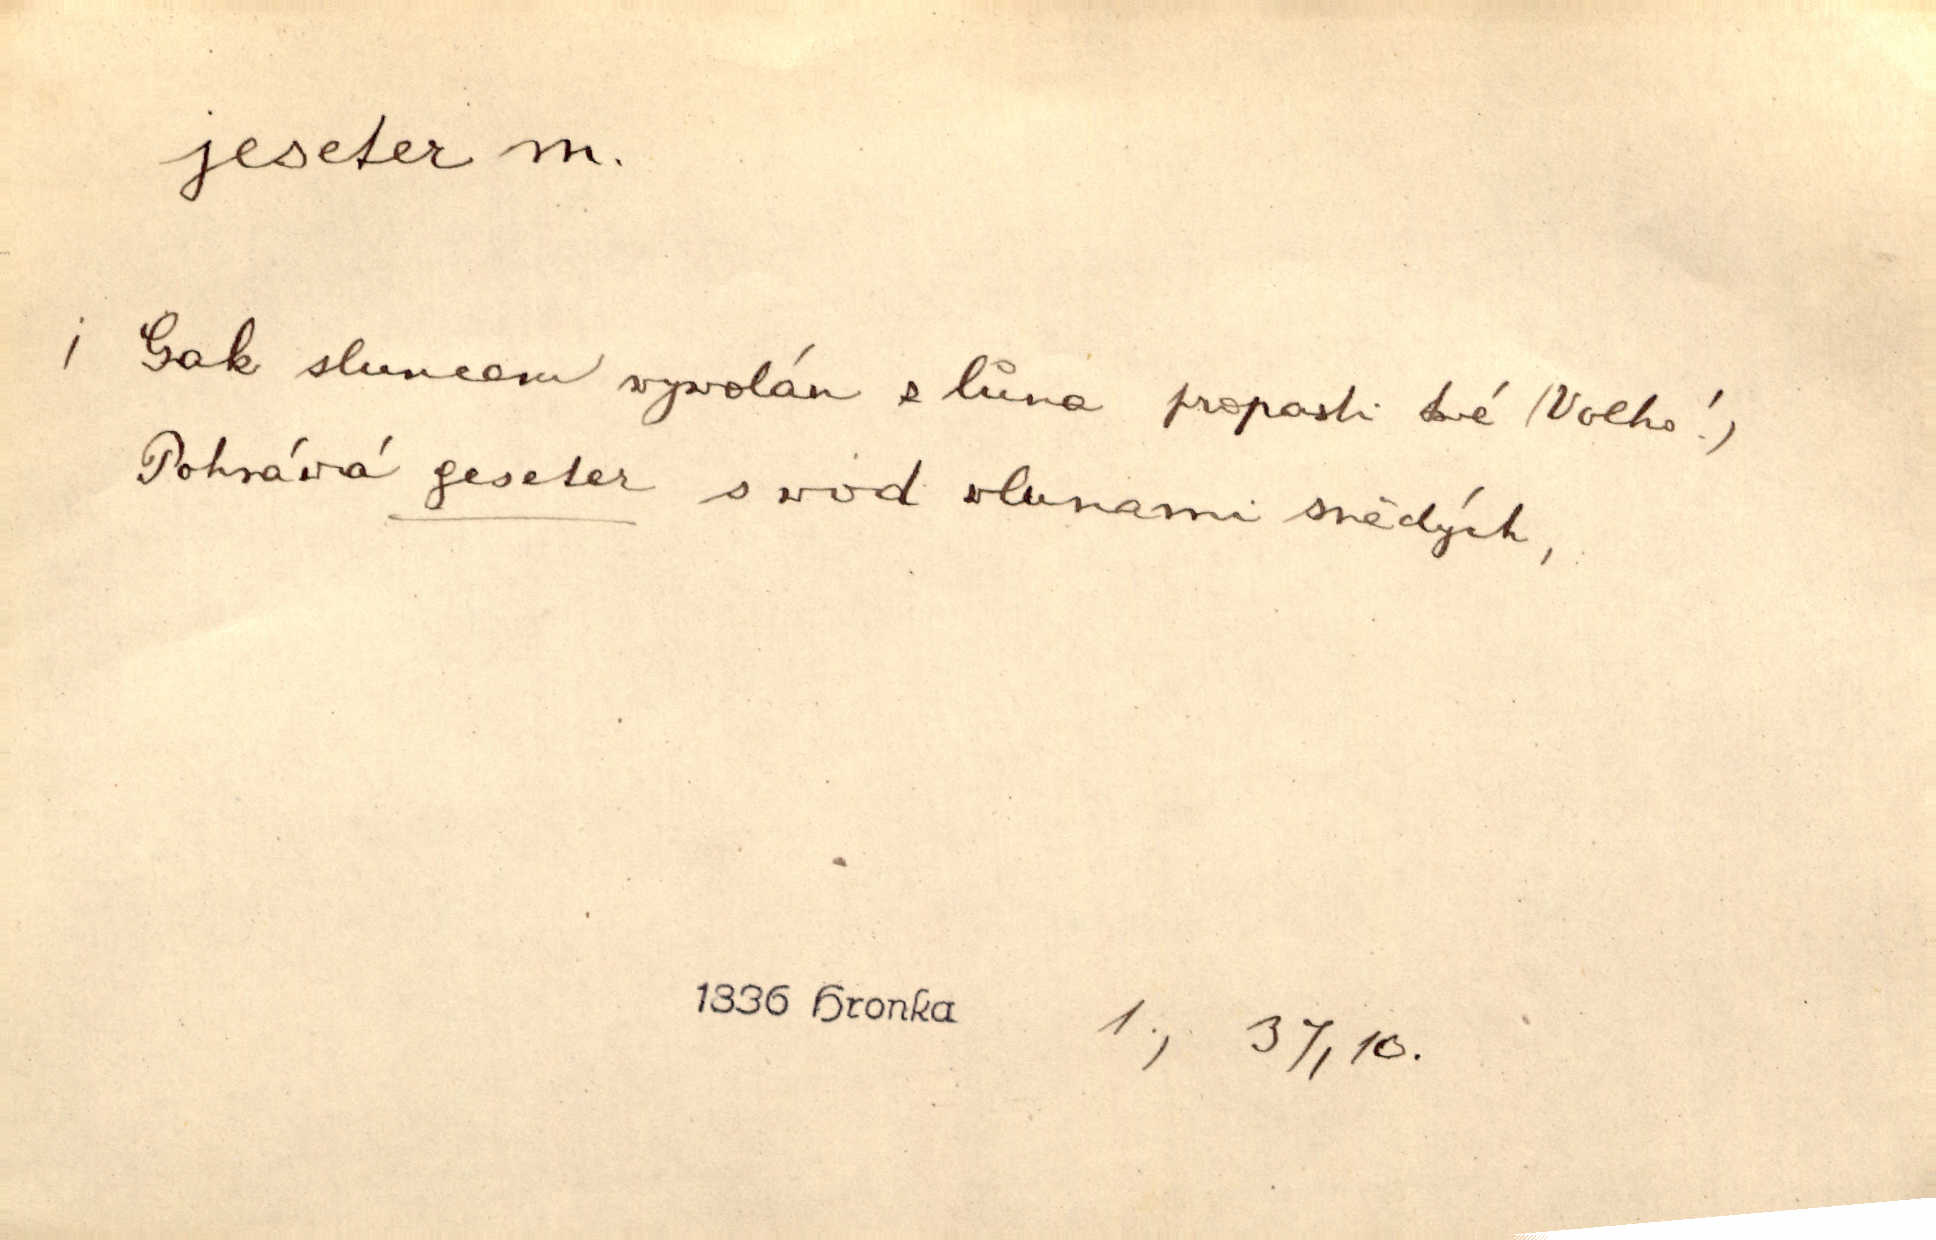 jeseter m.
j Gak sluncem wywolán z lůna propasti twé (Volho!)
Pohráwá geseter s wod wlunami snědých,
1836 Hronka 1., 37, 10.